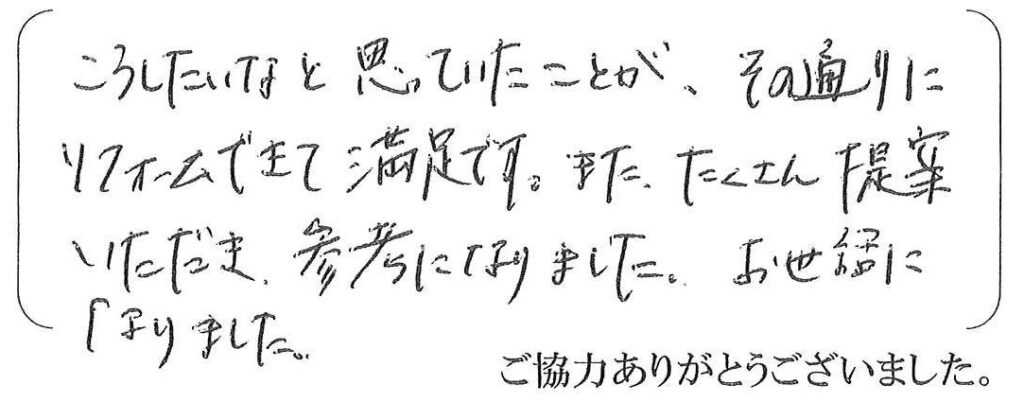 こうしたいなと思っていたことが、その通りに
リフォームできて満足です。また、たくさん提案
いただき、参考になりました。お世話に
なりました。
ご協力ありがとうございました。